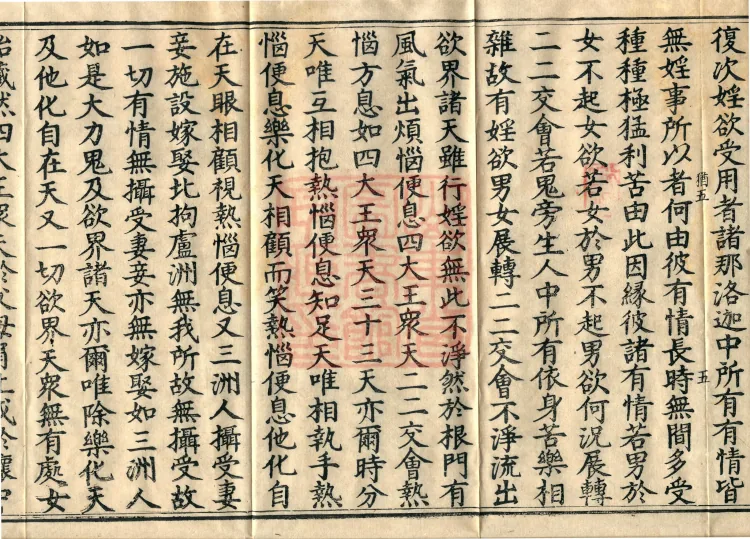 復次婬欲受用者諸那洛迦中所有有情皆
猶五
五
無婬事所以者何由彼有情長時無間多受
種種極猛利苦由此因緣彼諸有情若男於
女不起女欲若女於男不起男欲何況展轉
二二交會若鬼旁生人中所有依身苦樂相
雜故有婬欲男女展轉二二交會不淨流出
欲界諸天雖行婬欲無此不淨然於根門有
風氣出煩惱便息四大王衆天二二交會熱
惱方息如四大王衆天三十三天亦爾時分
天唯互相抱熱惱便息知足天唯相執手熱
惱便息樂化天相顧而笑熱惱便息他化自
在天眼相顧視熱惱便息又三洲人攝受妻
妾施設嫁娶北拘盧洲無我所故無攝受故
一切有情無攝受妻妾亦無嫁娶如三洲人
如是大力鬼及欲界諸天亦爾唯除樂化天
及他化自在天又一切欲界天衆無有處女
胎藏然四大王衆天於父母肩上或於懷中